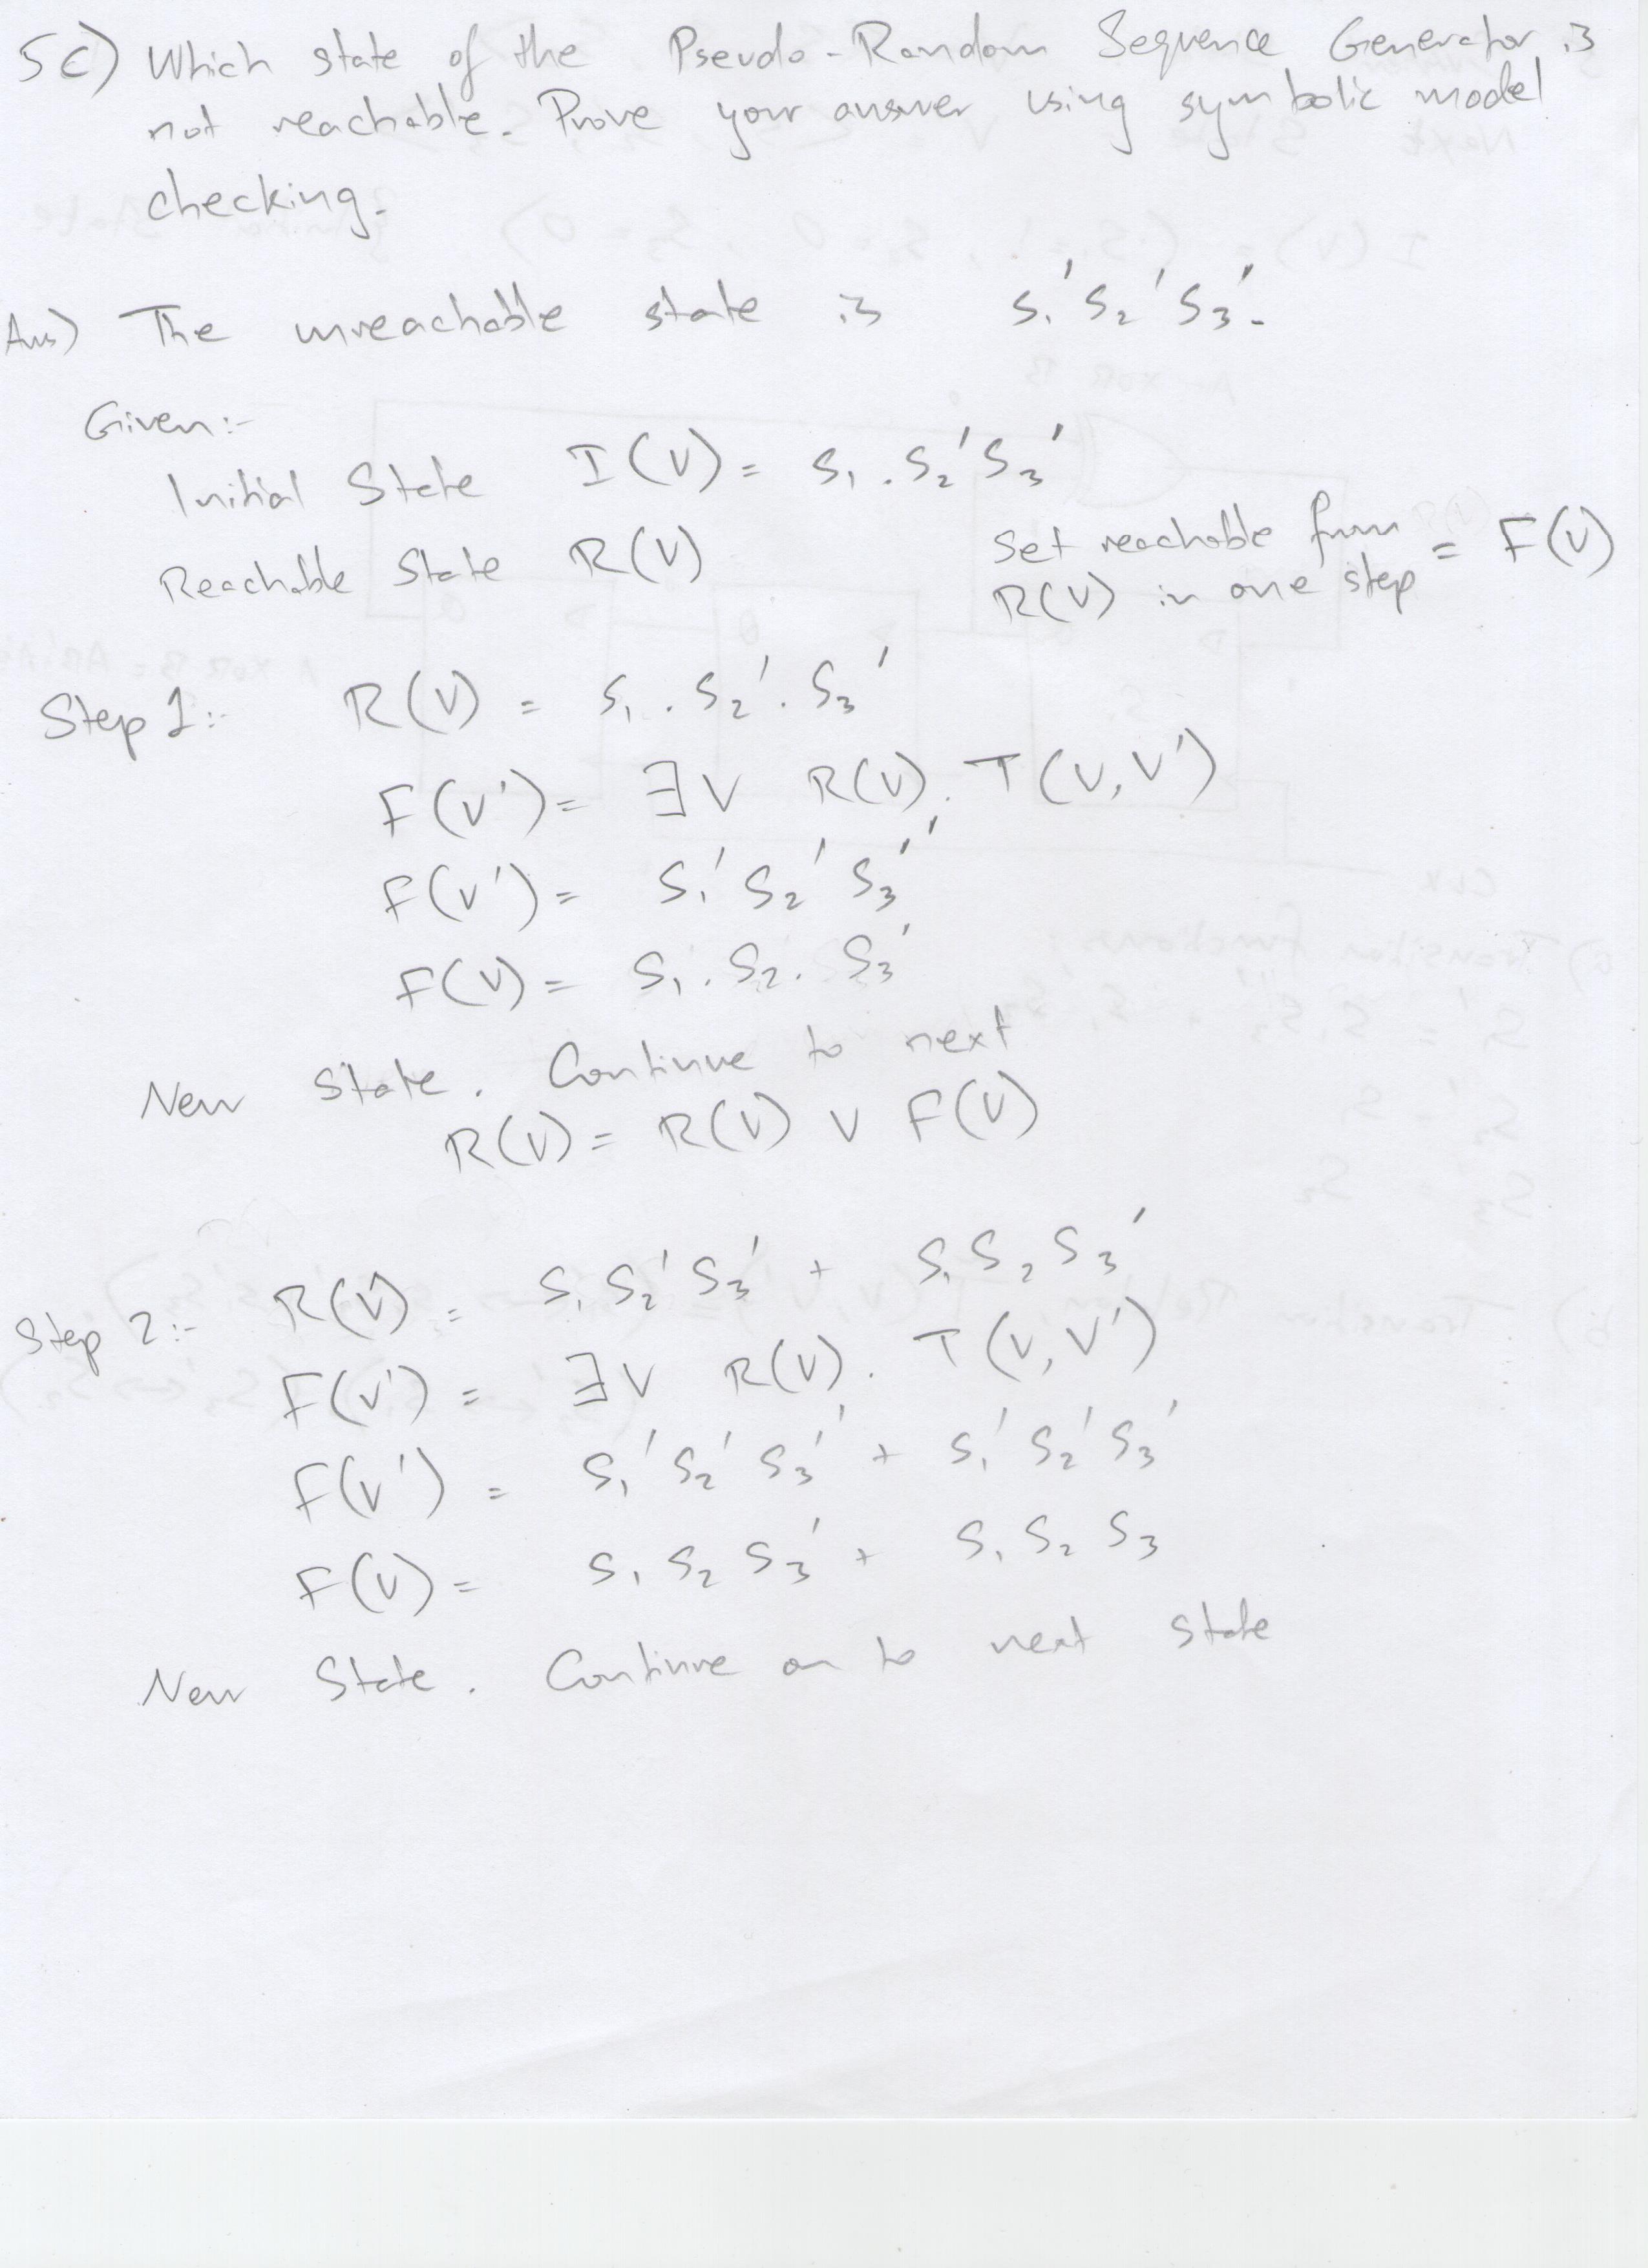 5c) Which state of the Pseudo-Random Sequence Generator is
not reachable. Prove your answer using symbolic model
checking.
Ans) The unreachable state is S₁'S₂'S₃'.
Given:-
Initial State I(V) = S₁.S₂'S₃'
Reachable State R(V)
Set reachable from
R(V) in one step = F(V)
Step 1:- R(V) = S₁.S₂'.S₃'
F(V') = ∃V R(V). T(V,V')
F(V') = S₁'S₂'S₃''
F(V) = S₁.S₂.S₃'
New State. Continue to next
R(V) = R(V) ∨ F(V)
Step 2:- R(V) = S₁S₂'S₃' + S₁S₂S₃'
F(V') = ∃V R(V). T(V,V')
F(V') = S₁'S₂'S₃'' + S₁'S₂'S₃'
F(V) = S₁S₂S₃' + S₁S₂S₃
New State. Continue on to next state